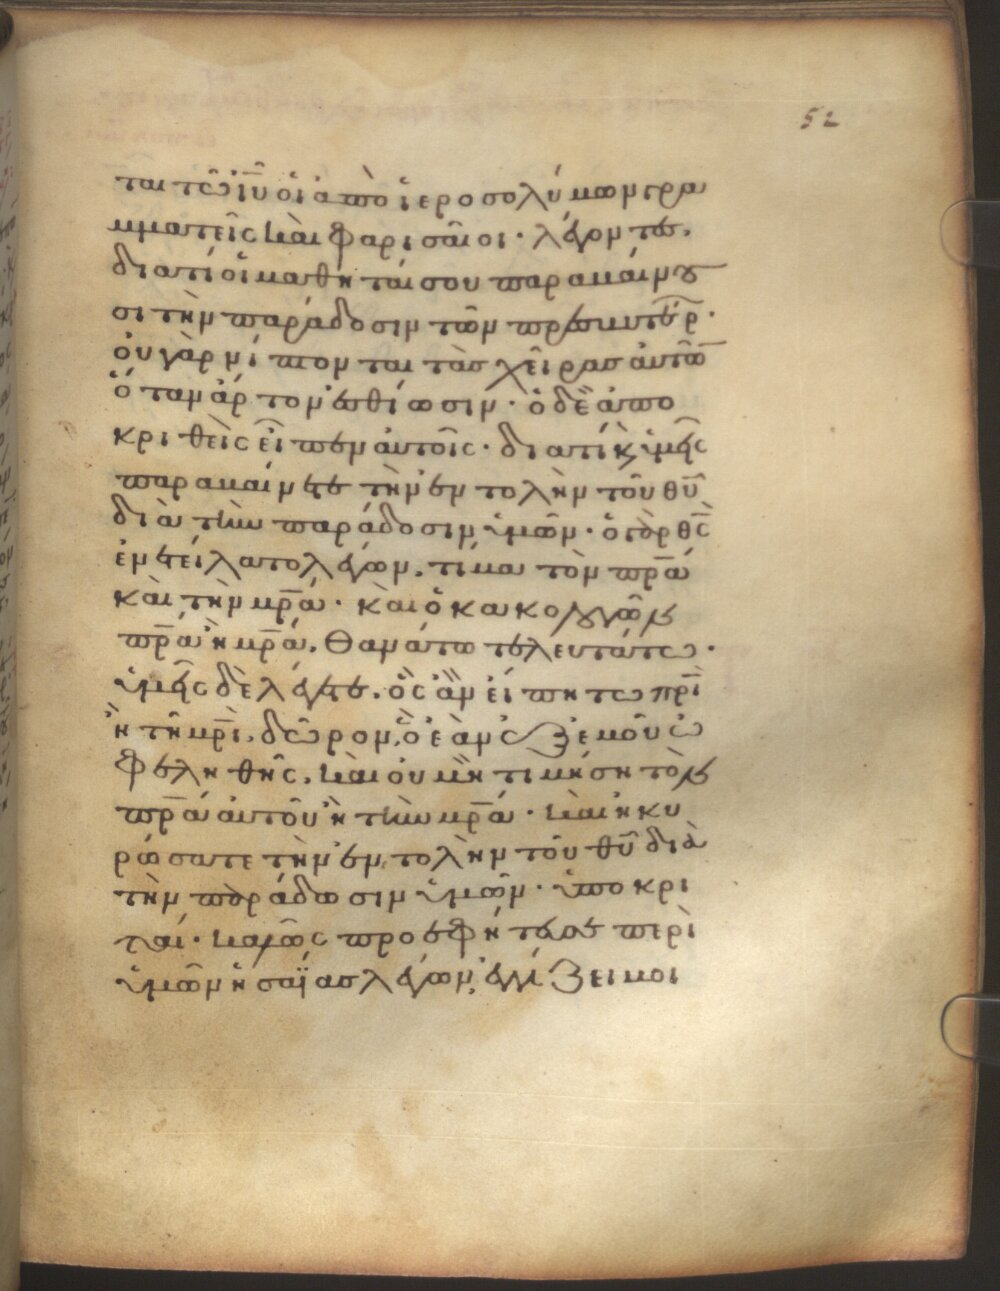 52
ται τῶ ἰῦ οἱ ἀπὸ ἱεροσολύμων γρα
μματεῖς καὶ φαρισαῖοι · λέγοντες,
διατί οἱ μαθηταί σου παραβαίνου
σι τὴν παράδοσιν τῶν πρεσβυτέρ ·
οὐ γὰρ νίπτονται τὰς χεῖρας αὐτῶ
ὅταν ἄρτον ἐσθίωσιν · ὁ δὲ ἀπο
κριθεὶς εἶπεν αὐτοῖς · διατί κ ὑμεῖς
παραβαίνετε τὴν ἐντολὴν τοῦ θῦ
διὰ τὴν παράδοσιν ὑμῶν · ὁ γὰρ θς
ἐνετείλατο λέγων, τίμα τὸν πρα
καὶ τὴν μρα · καὶ ὁ κακολογῶν
πρα ἢ μρα, θανάτω τελευτάτω ·
ὑμεῖς δὲ λέγετε, ὃς ἂν εἴπη τω πρι
ἢ τῆ μρι, δῶρον, ὃ ἐὰν ἐξ ἐμοῦ ὠ
φεληθῆς, καὶ οὐ μὴ τιμήση τὸν
πρα αὐτοῦ ἢ τὴν μρα · καὶ ἠκυ
ρώσατε τὴν ἐντολὴν τοῦ θῦ διὰ
τὴν παράδωσιν ὑμῶν · ὑποκρι
ταί · καλῶς προεφήτευσε περὶ
ὑμῶν ἡσαΐας λέγων, ἐγγίζει μοι